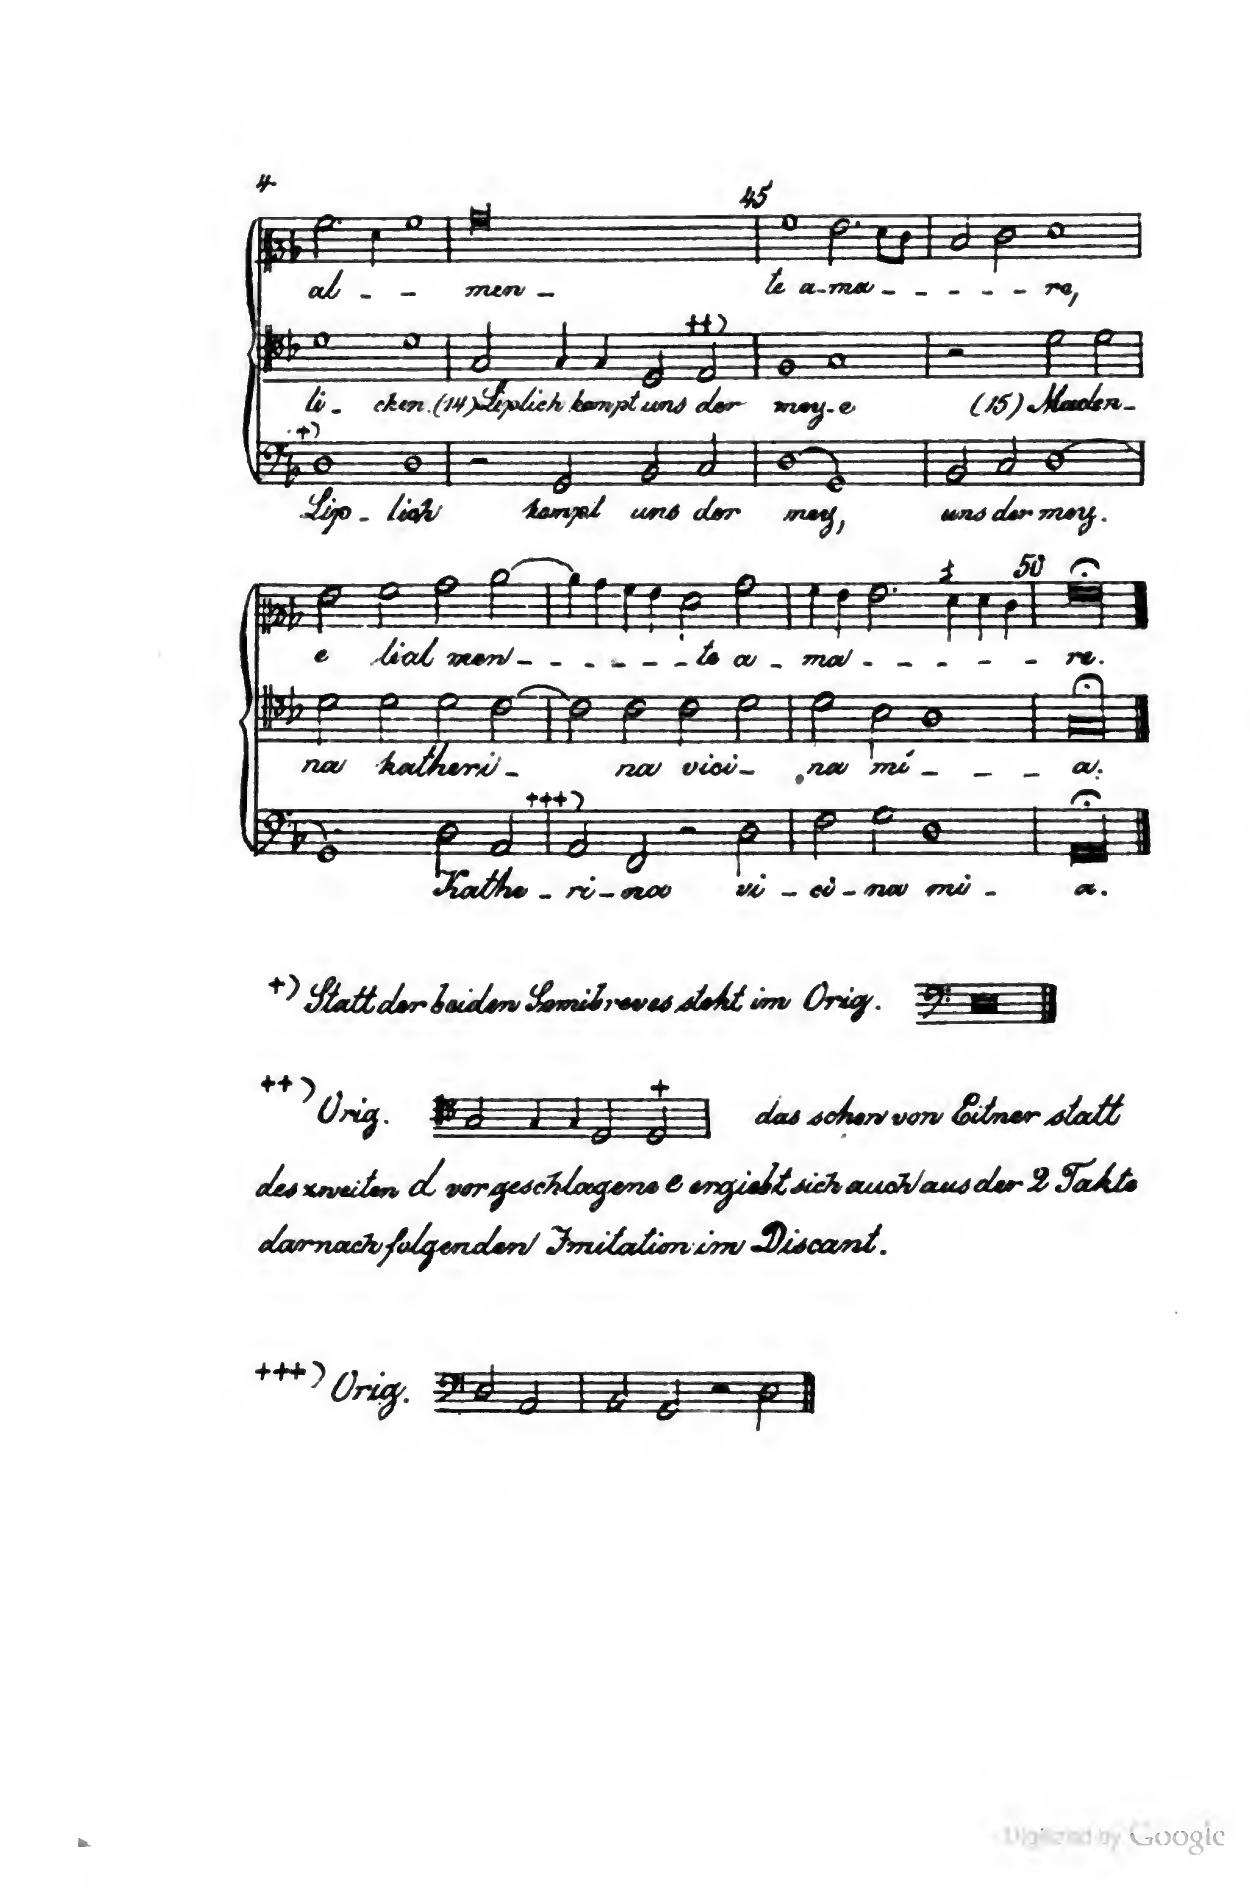 4
45
al - - men - te a-ma - - - - - re,
++)
li - chen. (14) Liplich kompt uns der mey-e (15) Maden-
+)
Lip - lich kompt uns der mey, uns der mey.
50
e lial men - - - - - - te a - ma - - - - - re.
na katheri - na vici - na mi - - - a.
+++)
Kathe - ri - na vi - ci - na mi - a.
+) Statt der beiden Semibreves steht im Orig.
+
++) Orig. das schon von Eitner statt
des zweiten d vorgeschlagene e ergiebt sich auch aus der 2 Takte
darnach folgenden Imitation im Discant.
+++) Orig.
Digitized by Google